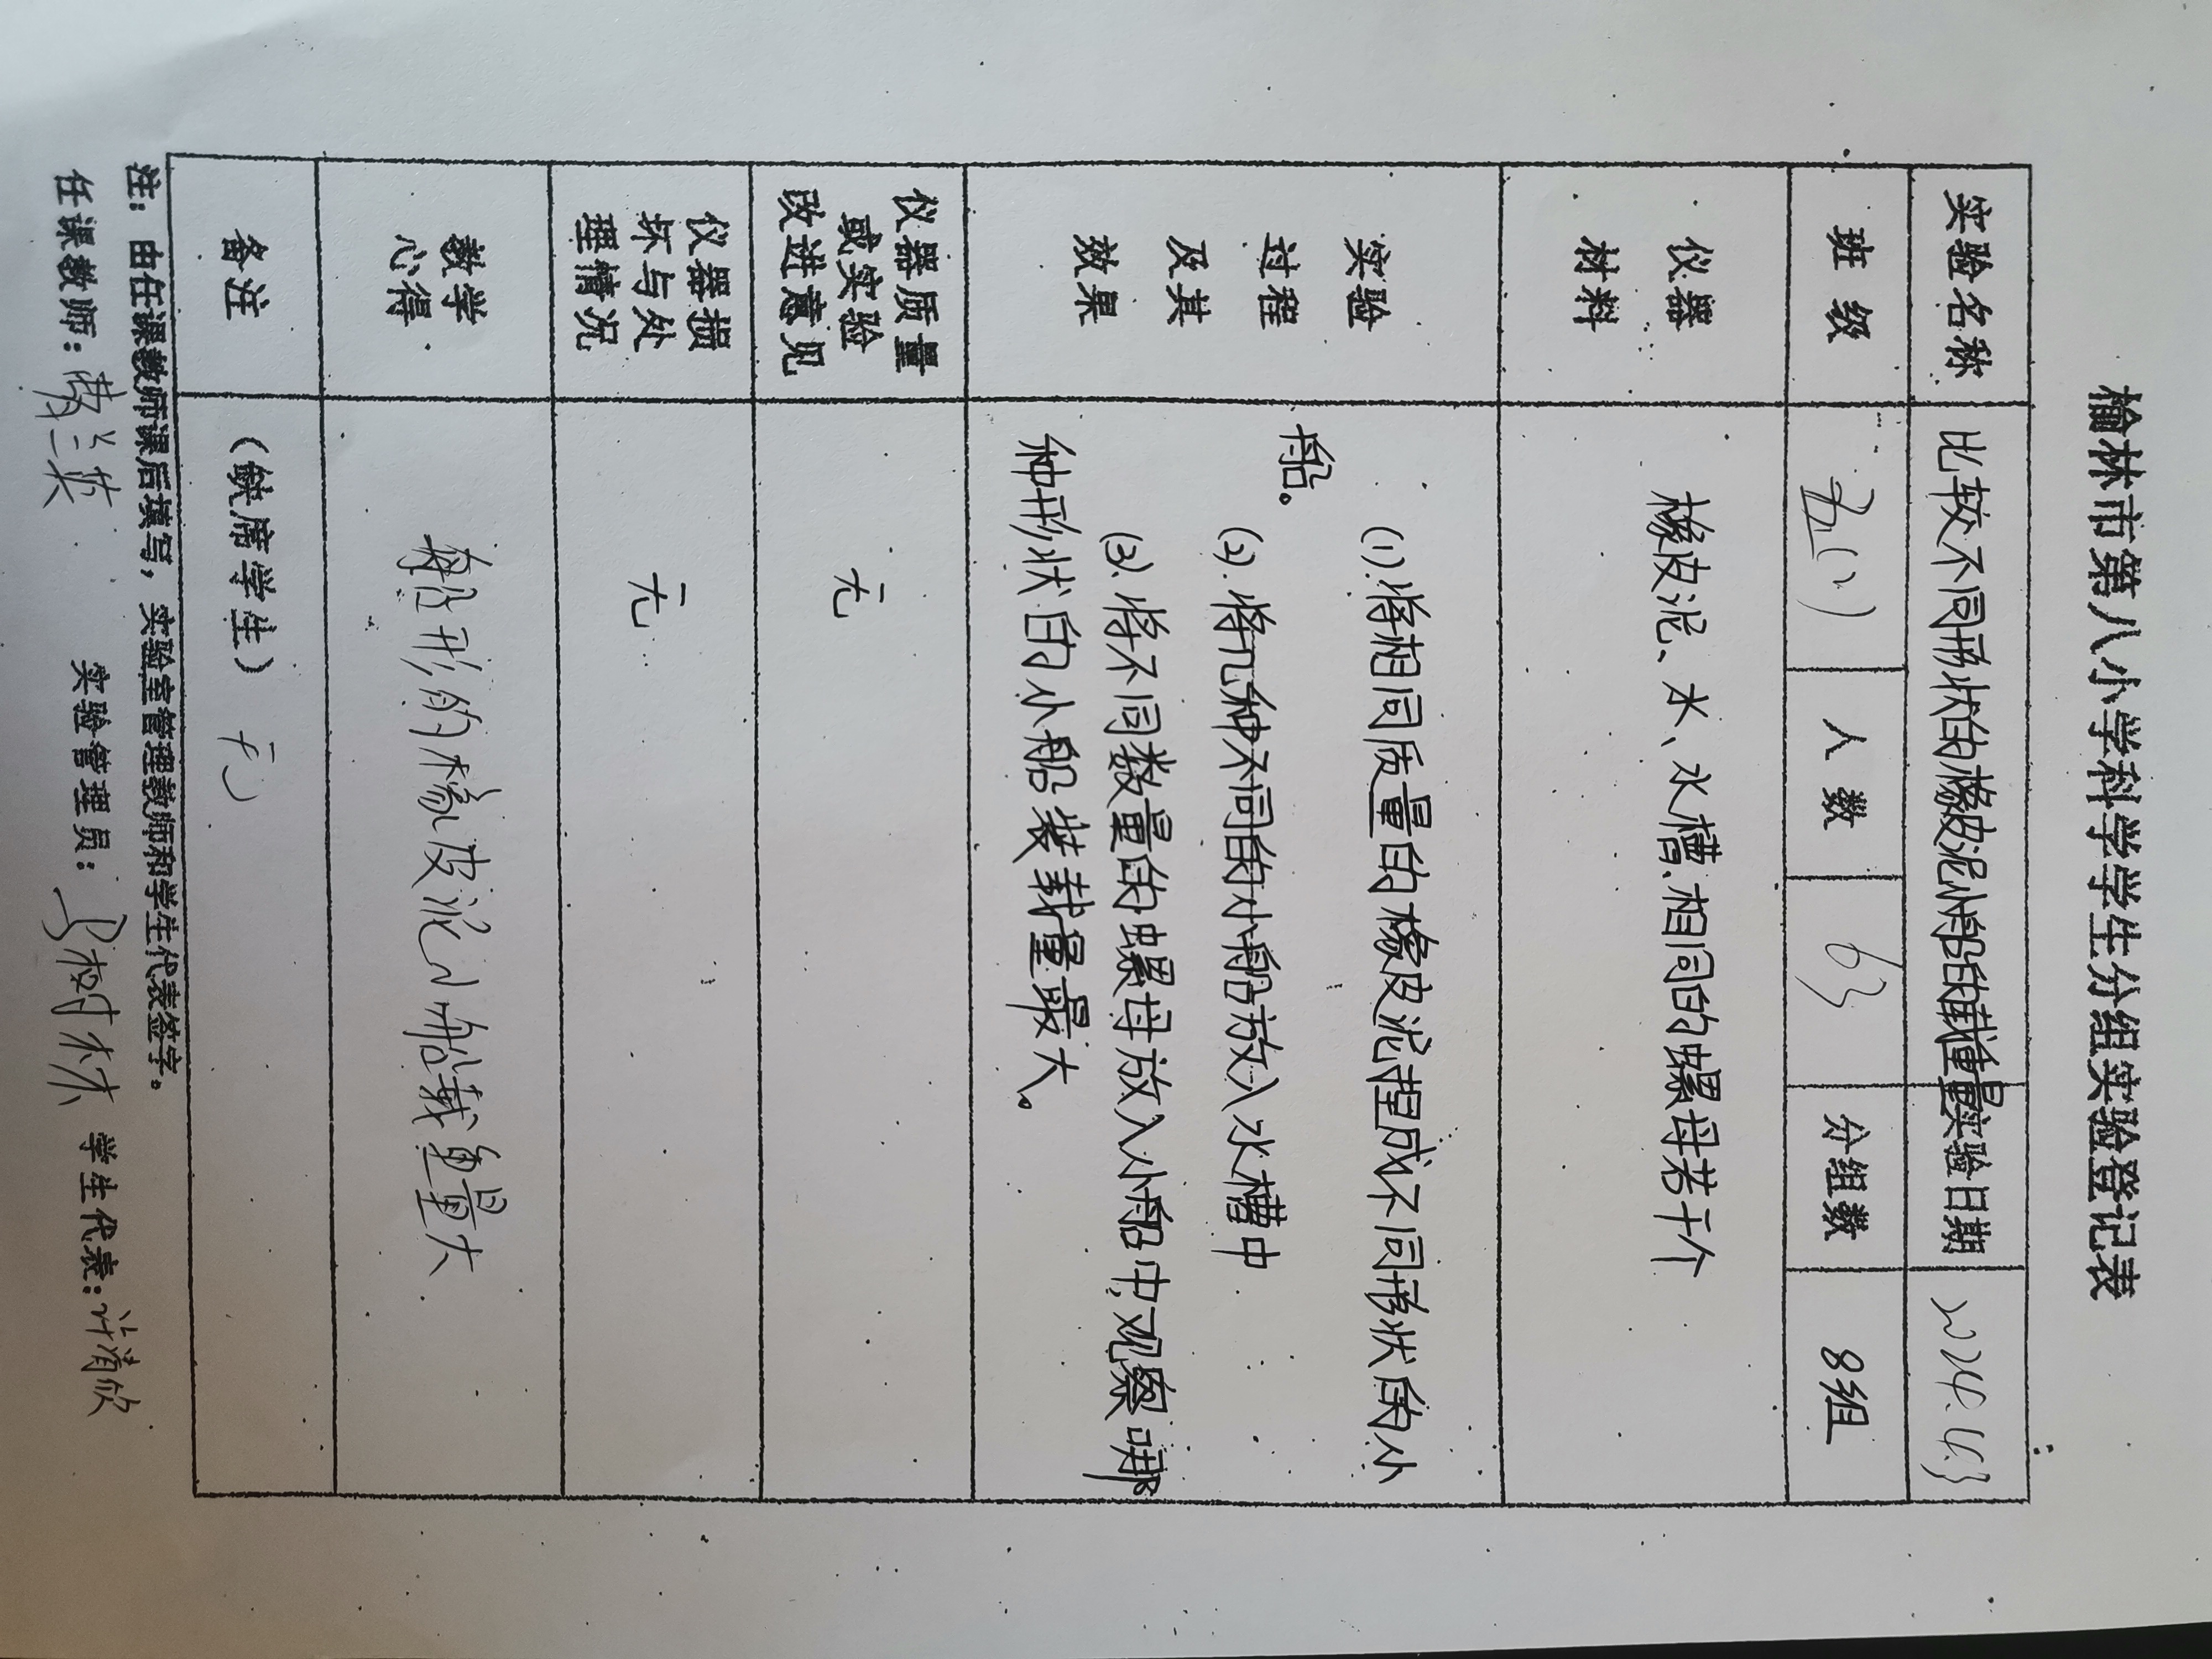 榆林市第八小学科学学生分组实验登记表
实验名称 比较不同形状的橡皮泥小船的载重量 实验日期 2024.4.3
班 级 五(1) 人 数 63 分组数 8组
仪器
材料
橡皮泥、水、水槽、相同的螺母若干个
实验
过程
及其
效果
(1).将相同质量的橡皮泥捏成不同形状的小
船。
(2).将几种不同的小船放入水槽中
(3).将不同数量的螺母放入小船中,观察哪
种形状的小船装载量最大。
仪器质量
或实验
改进意见
无
仪器损
坏与处
理情况
无
教学
心得
形的橡皮泥小船载重量大
备注 (缺席学生) 无
注:由任课教师课后填写,实验室管理教师和学生代表签字。
任课教师: 实验管理员: 树林 学生代表: